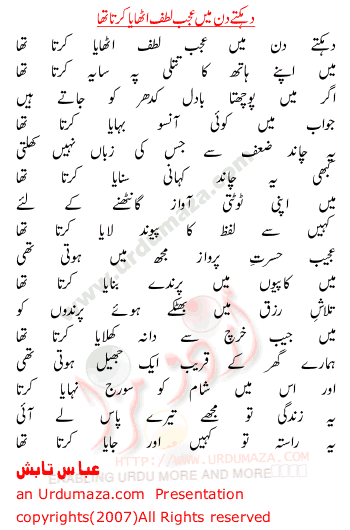 دہکتے دن میں عجب لطف اٹھایا کرتا تھا
دہکتے دن میں عجب لطف اٹھایا کرتا تھا
میں اپنے ہاتھ کا تتلی پہ سایہ کرتا تھا
اگر میں پوچھتا بادل کدھر کو جاتے ہیں
جواب میں کوئی آنسو بہایا کرتا تھا
یہ چاند ضعف ہے جس کی زباں نہیں کھلتی
کبھی یہ چاند کہانی سنایا کرتا تھا
میں اپنی ٹوٹتی آواز گانٹھنے کے لئے
کہیں سے لفظ کا پیوند لایا کرتا تھا
عجیب حسرتِ پرواز مجھ میں ہوتی تھی
میں کاپیوں میں پرندے بنایا کرتا تھا
تلاشِ رزق میں بھٹکے ہوئے پرندوں کو
میں جیب خرچ سے دانہ کھلایا کرتا تھا
ہمارے گھر کے قریب ایک جھیل ہوتی تھی
اور اس میں شام کو سورج نہایا کرتا
یہ زندگی تو مجھے تیرے پاس لے آئی
یہ راستہ تو کہیں اور جایا کرتا تھا
HTTP://WWW.URDUMAZA.COM
ENABLING URDU MORE AND MORE
عباس تابش
an Urdumaza.com Presentation
copyrights(2007)All Rights reserved
www.urdumaza.com
اردو مزا